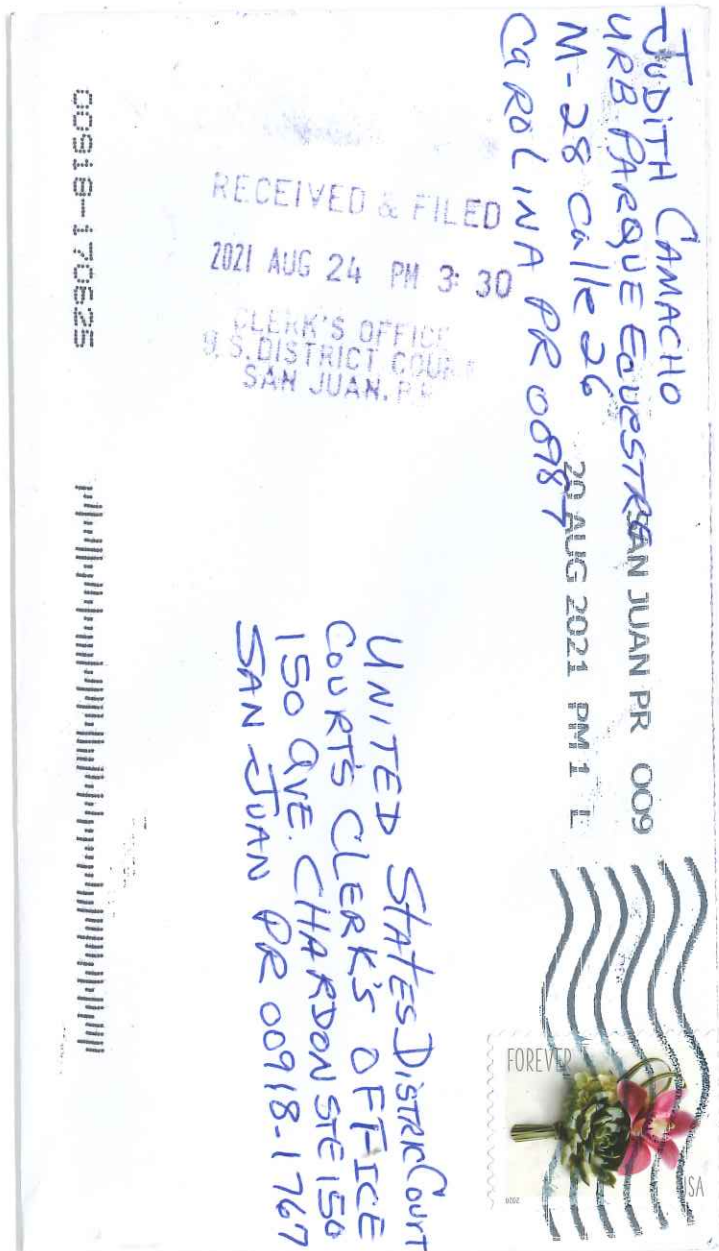 JUDITH CAMACHO
URB PARQUE ECUESTRE
M-28 Calle 26
CAROLINA PR 00987
SAN JUAN PR 009
20 AUG 2021 PM 1 L
FOREVER
USA
2020
RECEIVED & FILED
2021 AUG 24 PM 3:30
CLERK'S OFFICE
U.S. DISTRICT COURT
SAN JUAN, PR
UNITED StatES DistricCourt
COURTS CLERK'S OFFICE
150 AVE. CHARDON STE 150
SAN JUAN PR 00918-1767
00918-170625